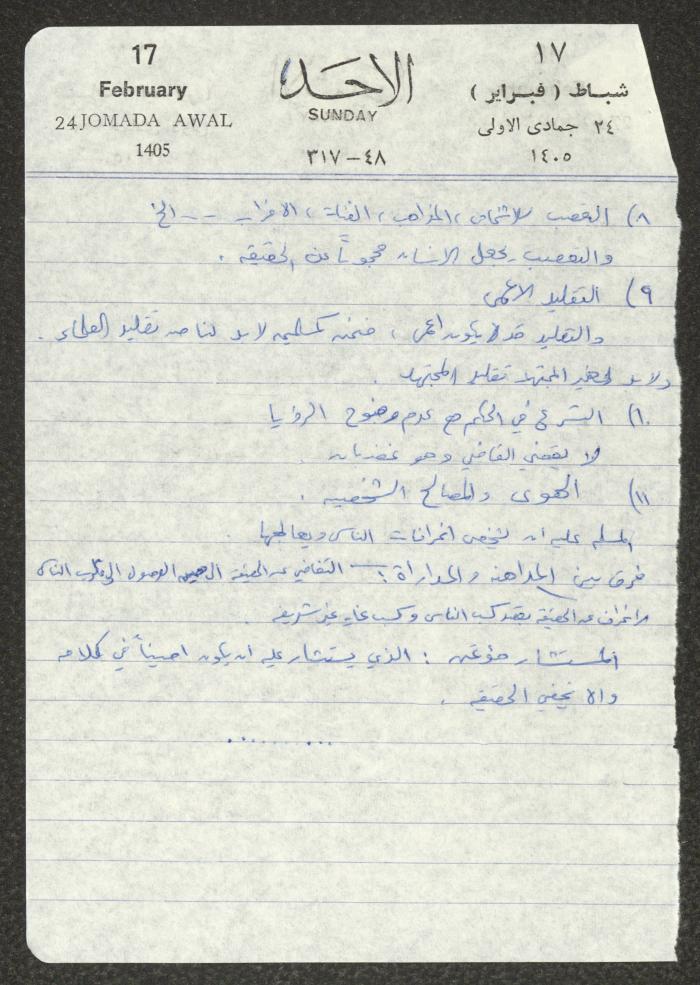 17
February
24 JOMADA AWAL
1405
الاحد
SUNDAY
٣١٧-٤٨
١٧
شباط ( فبراير )
٢٤ جمادى الاولى
١٤٠٥
٨) التعصب للاشخاص ، المذاهب ، الفئات ، الاحزاب -- الخ
والتعصب يجعل الانسان محجوباً عن الحقيقه .
٩) التقليد الاعمى
والتقليد قد لا يكون اعمى ، فنحن كمسلمين لابد لنا من تقليد العلماء .
ولابد لغير المجتهد تقليد المجتهد .
١٠) التسرع في الحكم مع عدم وضوح الرؤيا
لا يقضي القاضي وهو غضبان .
١١) الهوى والمصالح الشخصيه .
المسلم عليه ان يشخص انحرافات الناس ويعالجها .
فرق بين المداهنه والمداراة : التغاضي عن الحقيقة الوصول الى قلوب الناس
انحراف عن الحقيقة بقصد كسب الناس وكسب غايه غير شريفه .
المستشار مؤتمن : الذي يستشار عليه ان يكون اميناً في كلامه
والا يخفي الحقيقه .
..........